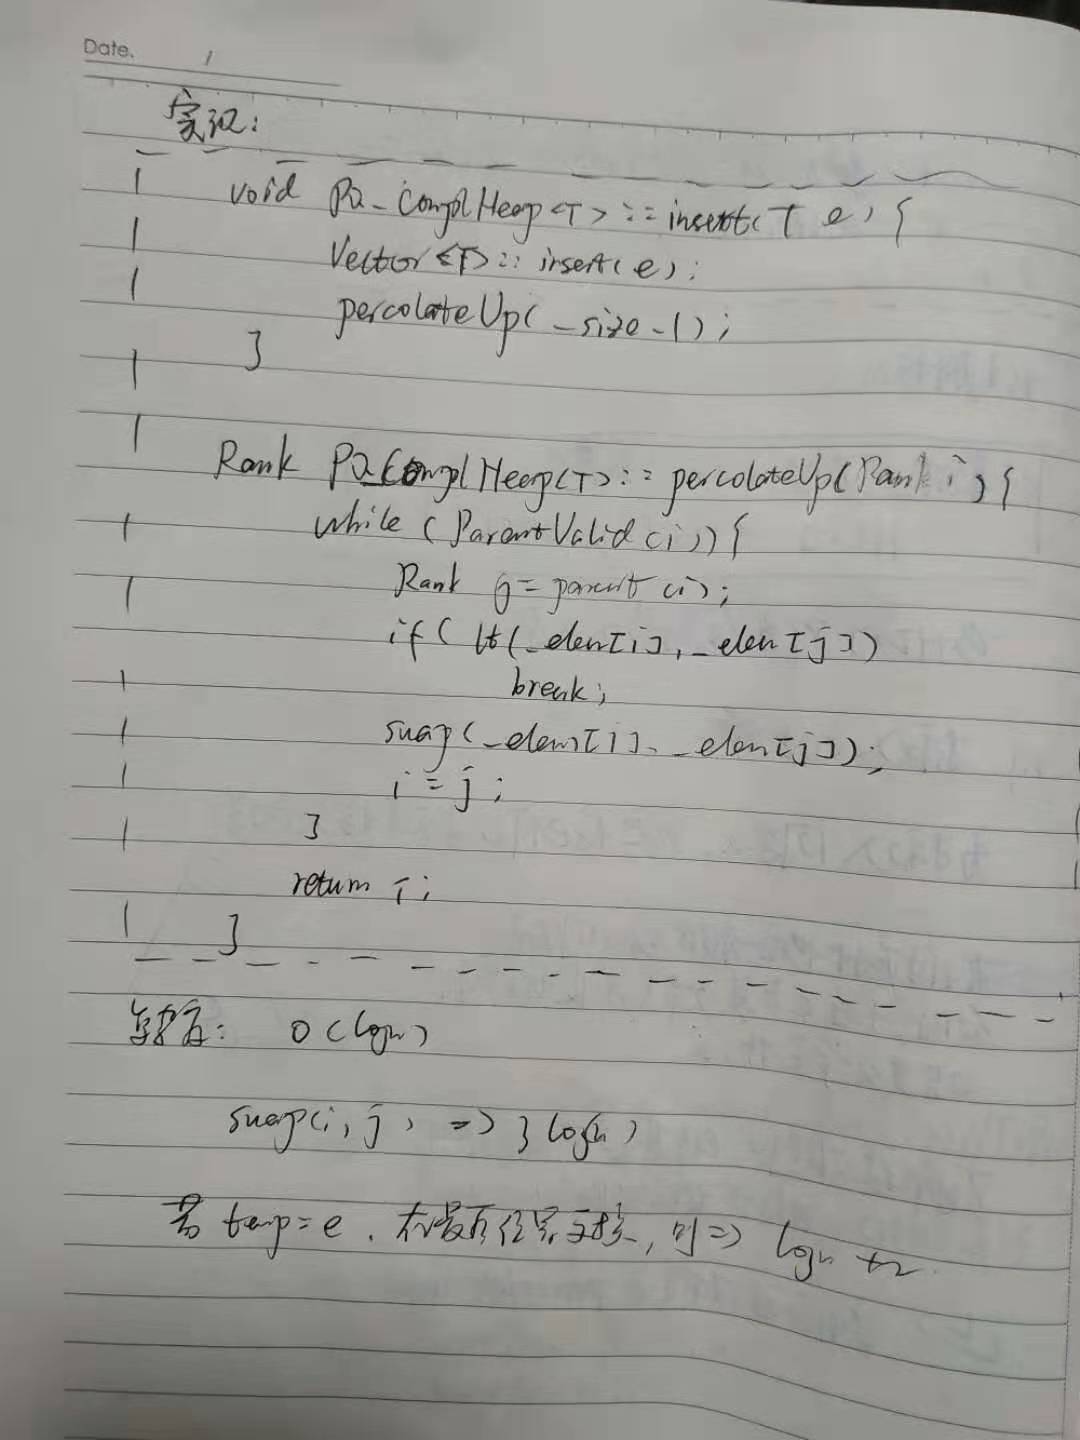 Date. /
实现:
void PQ_ComplHeap<T>::insert(T e) {
Vector<T>::insert(e);
percolateUp(_size-1);
}
Rank PQ_ComplHeap<T>::percolateUp(Rank i) {
while (ParentValid(i)) {
Rank j = parent(i);
if( lt(_elem[i], _elem[j])
break;
swap(_elem[i], _elem[j]);
i = j;
}
return i;
}
O(logn)
swap(i, j) => 3logn)
若 temp=e. 在最后位置交换, 则=> logn +2